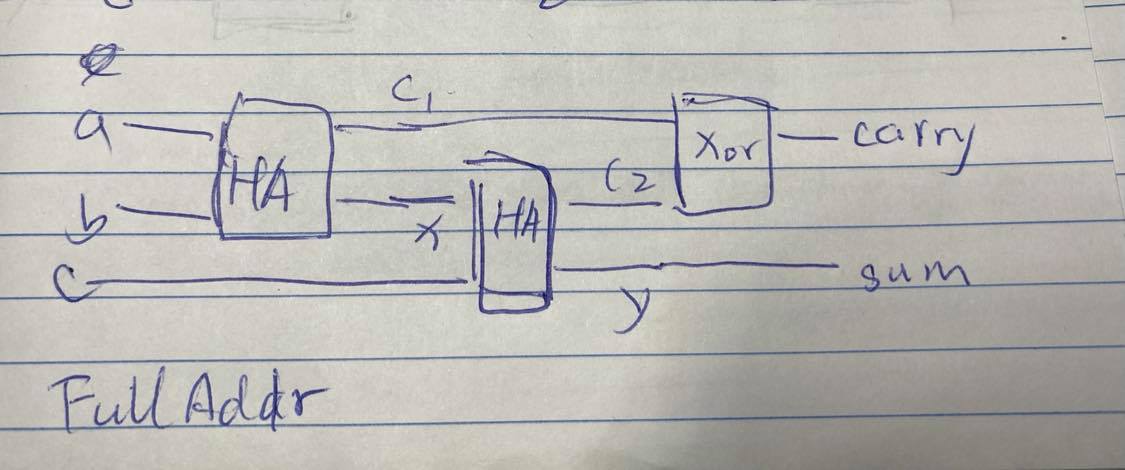 a
b
c
HA
C1
x
HA
C2
y
Xor
carry
sum
Full Addr